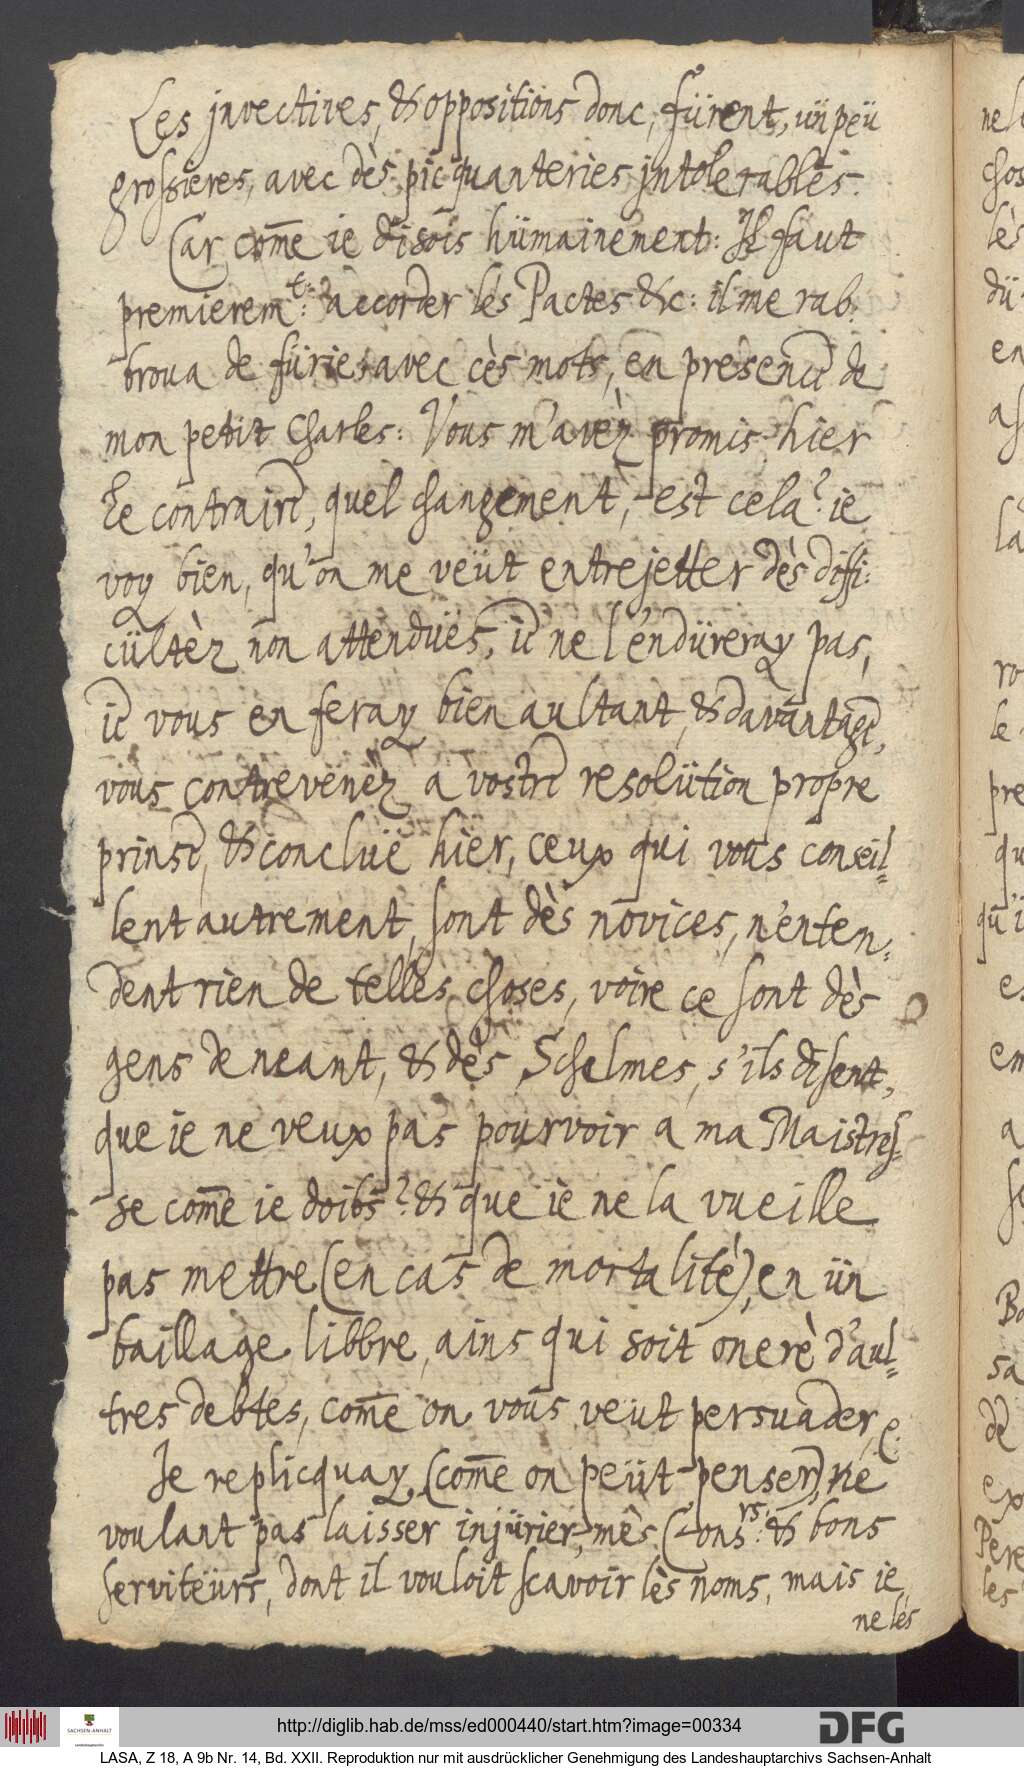 Les jnvectives, & oppositions donc, fürent, ün peü
grossieres, avec dès picquanteries jntolerables.
Car com̄e ie disois hümainement: Il faut
premierem.t: accorder les Pactes &c: il me rab:
broua de fürie, avec cès mots, en presence de
mon petit Charles: Vous m'avèz promis, hier
le contraire, quel changement, est cela? ie
voy bien, qu'on me veüt entrejetter dès diffi:
cültèz non attendües, ie ne l'endüreray pas,
ie vous en feray bien aultant, & davantage,
vous contrevenèz a vostre resolütion propre
prinse, & conclüe hier, ceux qui vous conseil¬
lent autrement, sont dès novices, n'enten¬
dent rien de telles choses, voire ce sont dès
gens de neant, & dès Schelmes, s'ils disent,
que ie ne veux pas pourvoir a ma Maistres¬
se com̄e ie doibs? & que ie ne la vueille
pas mettre (en cas de mortalitè), en ün
baillage libbre, ains qui soit onerè d'aul¬
tres debtes, com̄e on vous veut persuader, e:
Je replicquay, (com̄e on peüt penser), ne
voulant pas laisser injürier, mès Cons.rs: & bons
serviteürs, dont il vouloit scavoir lès noms, mais ie
ne les
nel
chos
lès
dü
en
la
ro
le
pre
qu
e
em
a
Ba
sa
de
ex
Pere
les
http://diglib.hab.de/mss/ed000440/start.htm?image=00334
SACHSEN-ANHALT
DFG
LASA, Z 18, A 9b Nr. 14, Bd. XXII. Reproduktion nur mit ausdrücklicher Genehmigung des Landeshauptarchivs Sachsen-Anhalt